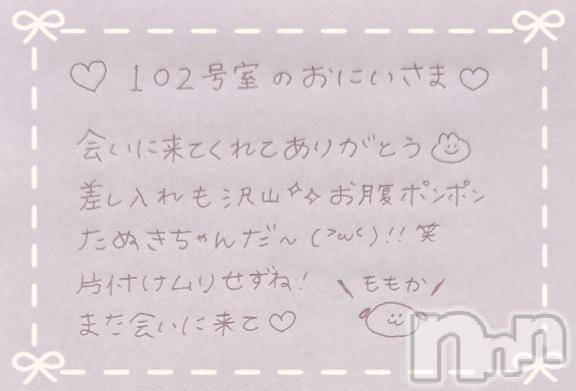 ♡102号室のおにいさま♡
会いに来てくれてありがとう
差し入れも沢山✧✧お腹ポンポン
たぬきちゃんだ〜(˃ω˂)!!笑
片付けムリせずね!
\ももか/
まだ会いに来て♡
nmn